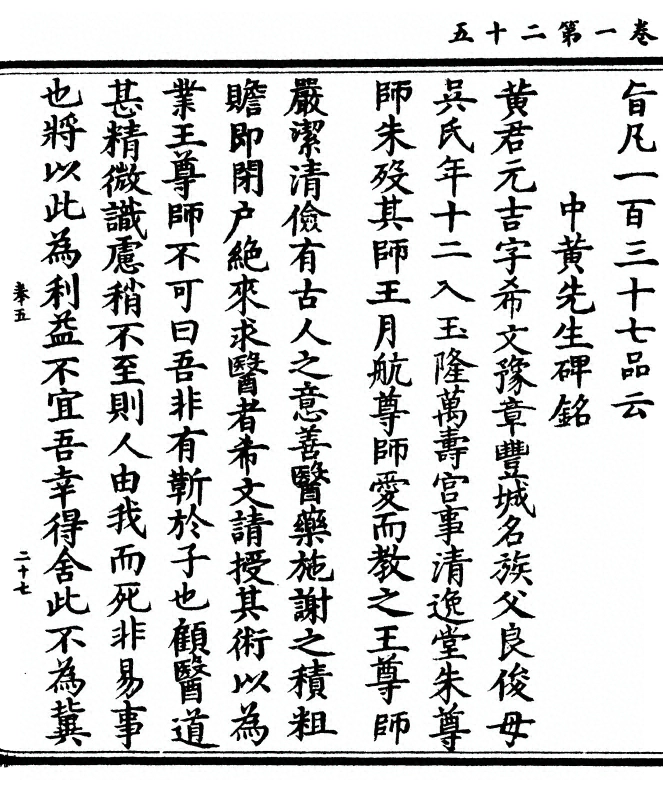 卷一第二十五
旨凡一百三十七品云
中黃先生碑銘
黃君元吉字希文豫章豐城名族父良俊母
吳氏年十二入玉隆萬壽宮事清逸堂朱尊
師朱歿其師王月航尊師愛而教之王尊師
嚴潔清儉有古人之意善醫藥施謝之積粗
贍即閉户絕來求醫者希文請授其術以為
業王尊師不可曰吾非有靳於子也顧醫道
甚精微識慮稍不至則人由我而死非易事
也將以此為利益不宜吾幸得舍此不為冀
卷五
二十七